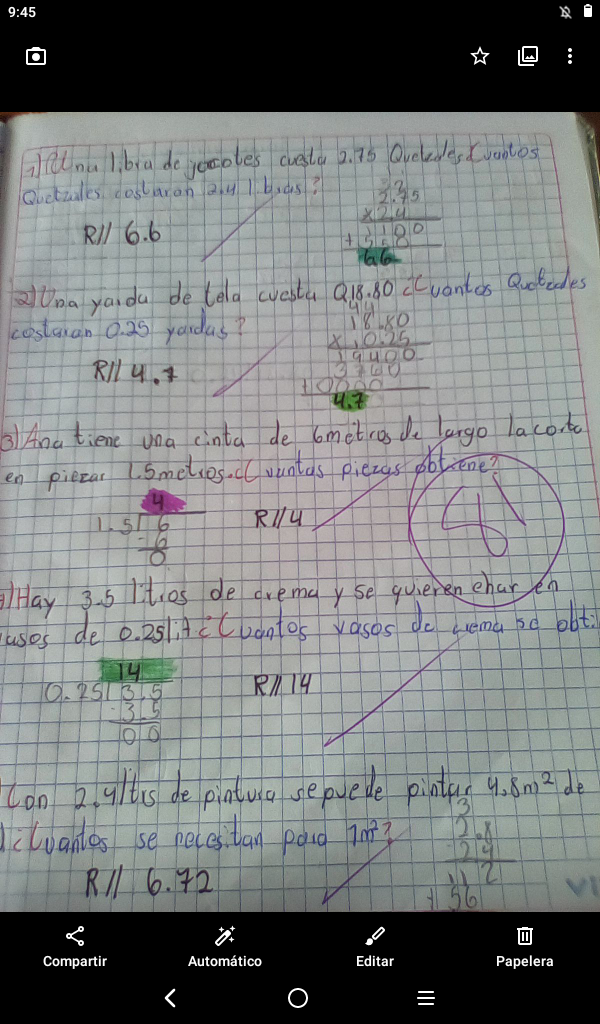 9:45
1) Una libra de jocotes cuesta 2.75 Quetzales Cuantos
Quetzales costaran 2.4 libras?
2.75
x 2.4
1100
+ 5.8
6.6
R// 6.6
2) Una yarda de tela cuesta Q18.80 ¿Cuantos Quetzales
costaran 0.25 yardas?
44
18.80
x 0.25
19400
3760
+ 0000
4.7
R// 4.7
3) Ana tiene una cinta de 6 metros de largo la corta
en piezas 1.5 metros. ¿Cuantas piezas obtiene?
4
1.5 6
- 6
0
R// 4
Hay 3.5 litros de crema y se quieren echar en
vasos de 0.25 lit ¿Cuantos vasos de crema se obti
14
0.25 3.5
- 3.5
00
R// 14
Con 2.4 ltrs de pintura se puede pintar 4.8m² de
¿Cuantos se necesitan para 1m²?
3
2.8
2.4
112
+ 56
R// 6.72
Compartir
Automático
Editar
Papelera